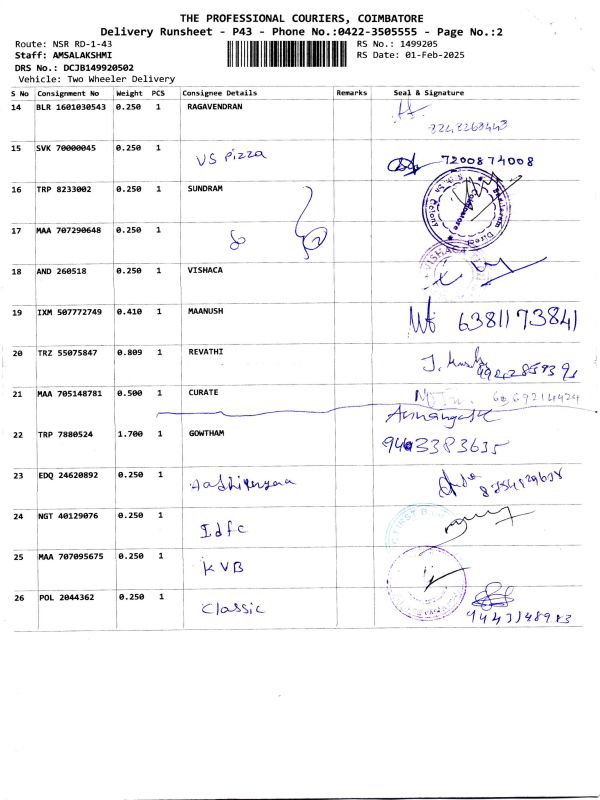 THE PROFESSIONAL COURIERS, COIMBATORE
Delivery Runsheet - P43 - Phone No.:0422-3505555 - Page No.:2
Route: NSR RD-1-43 RS No.: 1499205
Staff: AMSALAKSHMI RS Date: 01-Feb-2025
DRS No.: DCJB149920502
Vehicle: Two Wheeler Delivery
S No Consignment No Weight PCS Consignee Details Remarks Seal & Signature
14 BLR 1601030543 0.250 1 RAGAVENDRAN
15 SVK 70000045 0.250 1 VS Pizza 7200874008
16 TRP 8233002 0.250 1 SUNDRAM
17 MAA 707290648 0.250 1
18 AND 260518 0.250 1 VISHACA
19 IXM 507772749 0.410 1 MAANUSH 6381173841
20 TRZ 55075847 0.809 1 REVATHI
21 MAA 705148781 0.500 1 CURATE
22 TRP 7880524 1.700 1 GOWTHAM 9403383635
23 EDQ 24620892 0.250 1
24 NGT 40129076 0.250 1 Idfc
25 MAA 707095675 0.250 1 KVB
26 POL 2044362 0.250 1 Classic 9443148983